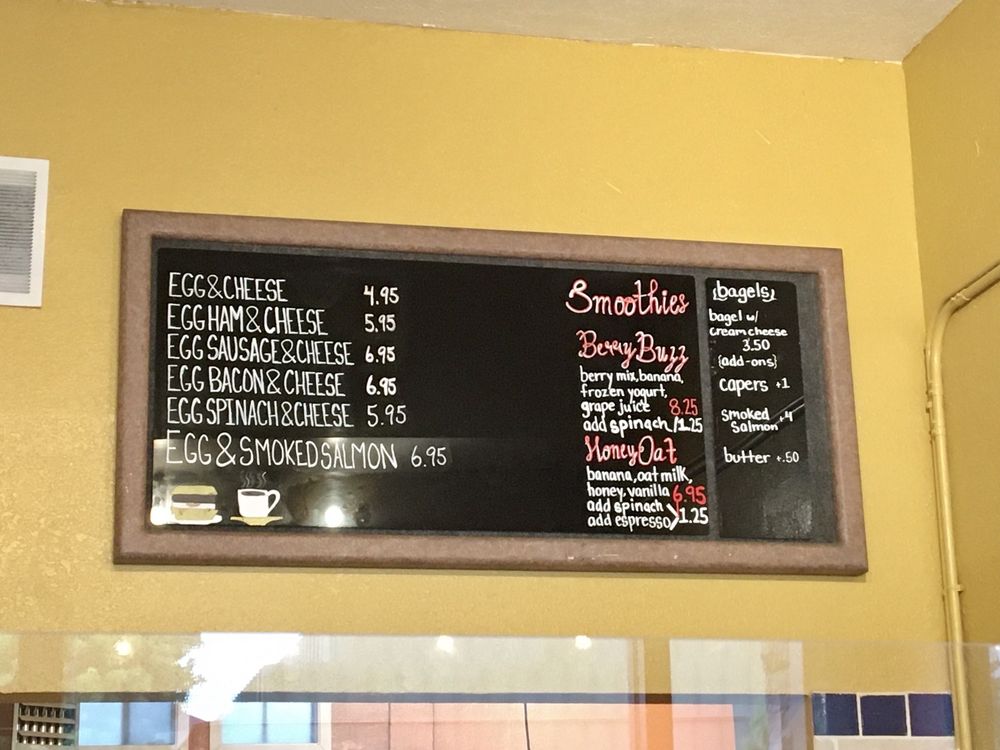 EGG & CHEESE 4.95
EGG HAM & CHEESE 5.95
EGG SAUSAGE & CHEESE 6.95
EGG BACON & CHEESE 6.95
EGG SPINACH & CHEESE 5.95
EGG & SMOKED SALMON 6.95
Smoothies
Berry Buzz
berry mix, banana,
frozen yogurt,
grape juice 8.25
add spinach /1.25
Honey Oat
banana, oat milk,
honey, vanilla 6.95
add spinach
add espresso 1.25
{bagels}
bagel w/
cream cheese
3.50
{add-ons}
capers +1
smoked
Salmon +4
butter +.50